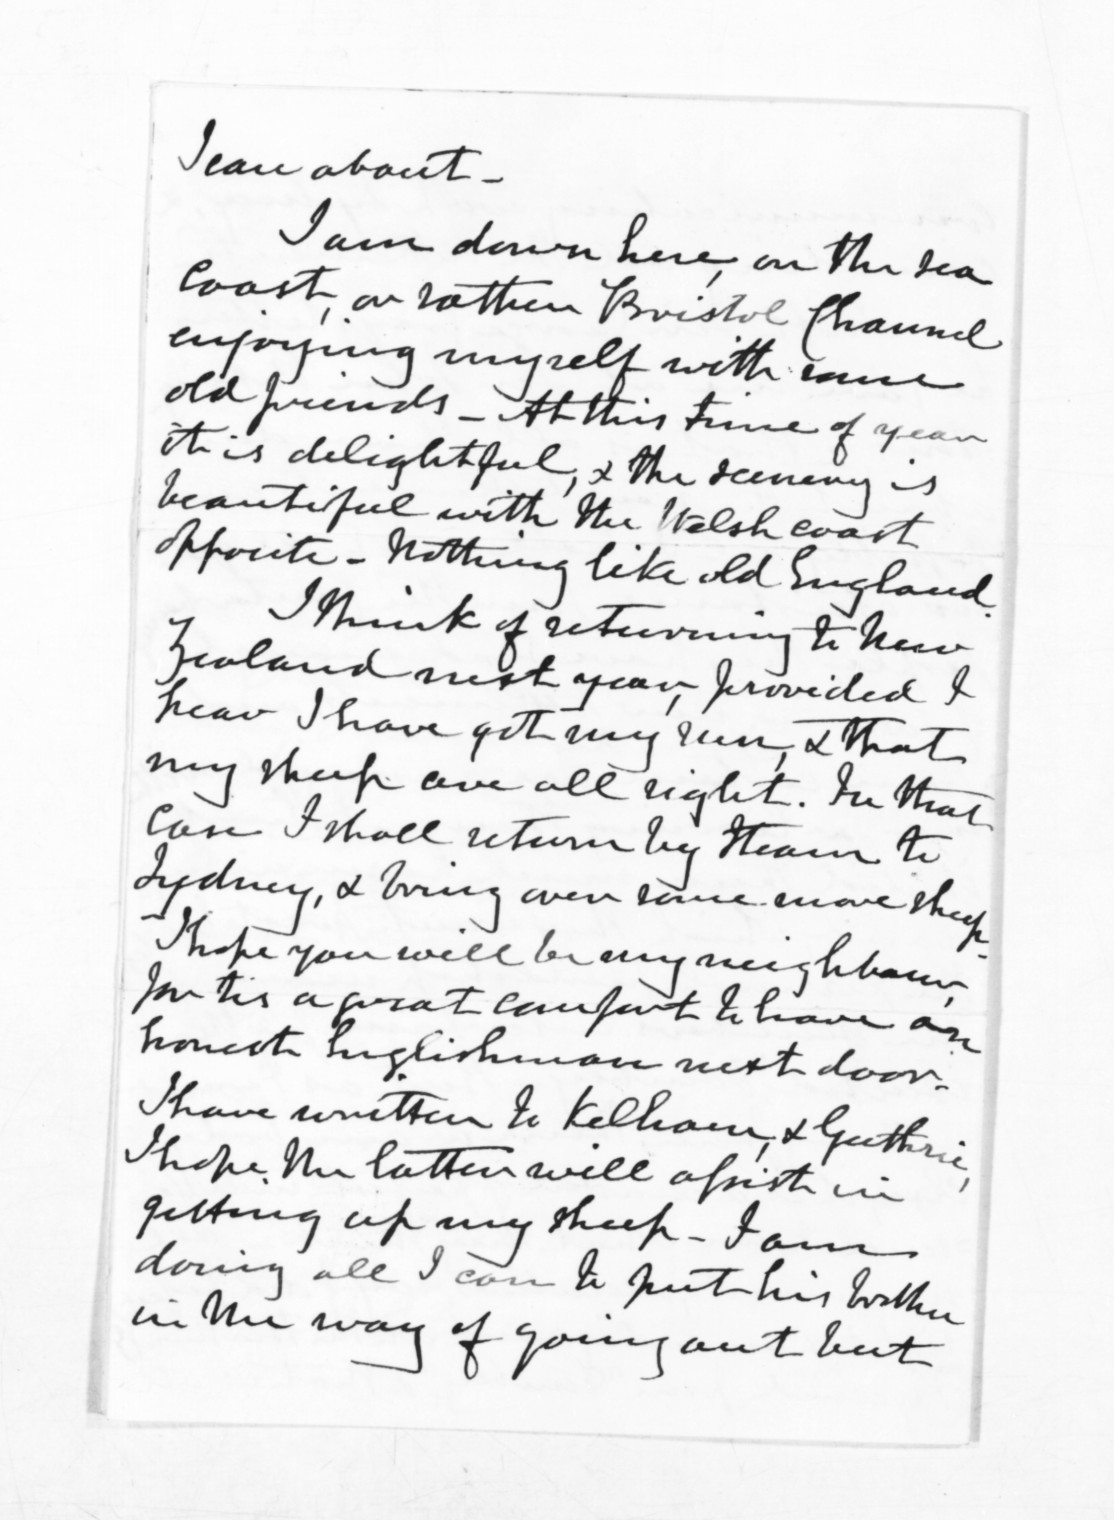 I can about -
I am down here, on the sea
coast, or rather Bristol Channel
enjoying myself with some
old friends - At this time of year
it is delightful, & the scenery is
beautiful with the Welsh coast
opposite - Nothing like old England.
I think of returning to New
Zealand next year, provided I
hear I have got my run, & that
my sheep are all right. In that
case I shall return by steam to
Sydney, & bring over some more sheep -
I hope you will be my neighbour,
for tis a great comfort to have an
honest Englishman next door.
I have written to Kelham, & Guthrie,
I hope the latter will assist in
getting up my sheep - I am
doing all I can to put his brother
in the way of going out but